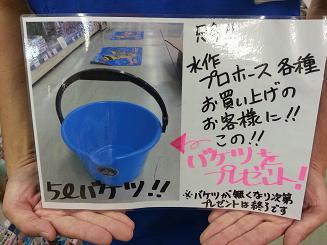 水作
プロホース各種
お買い上げの
お客様に!!
この!!
バケツを
プレゼント!
※バケツが無くなり次第
プレゼントは終了です
5ℓバケツ!!